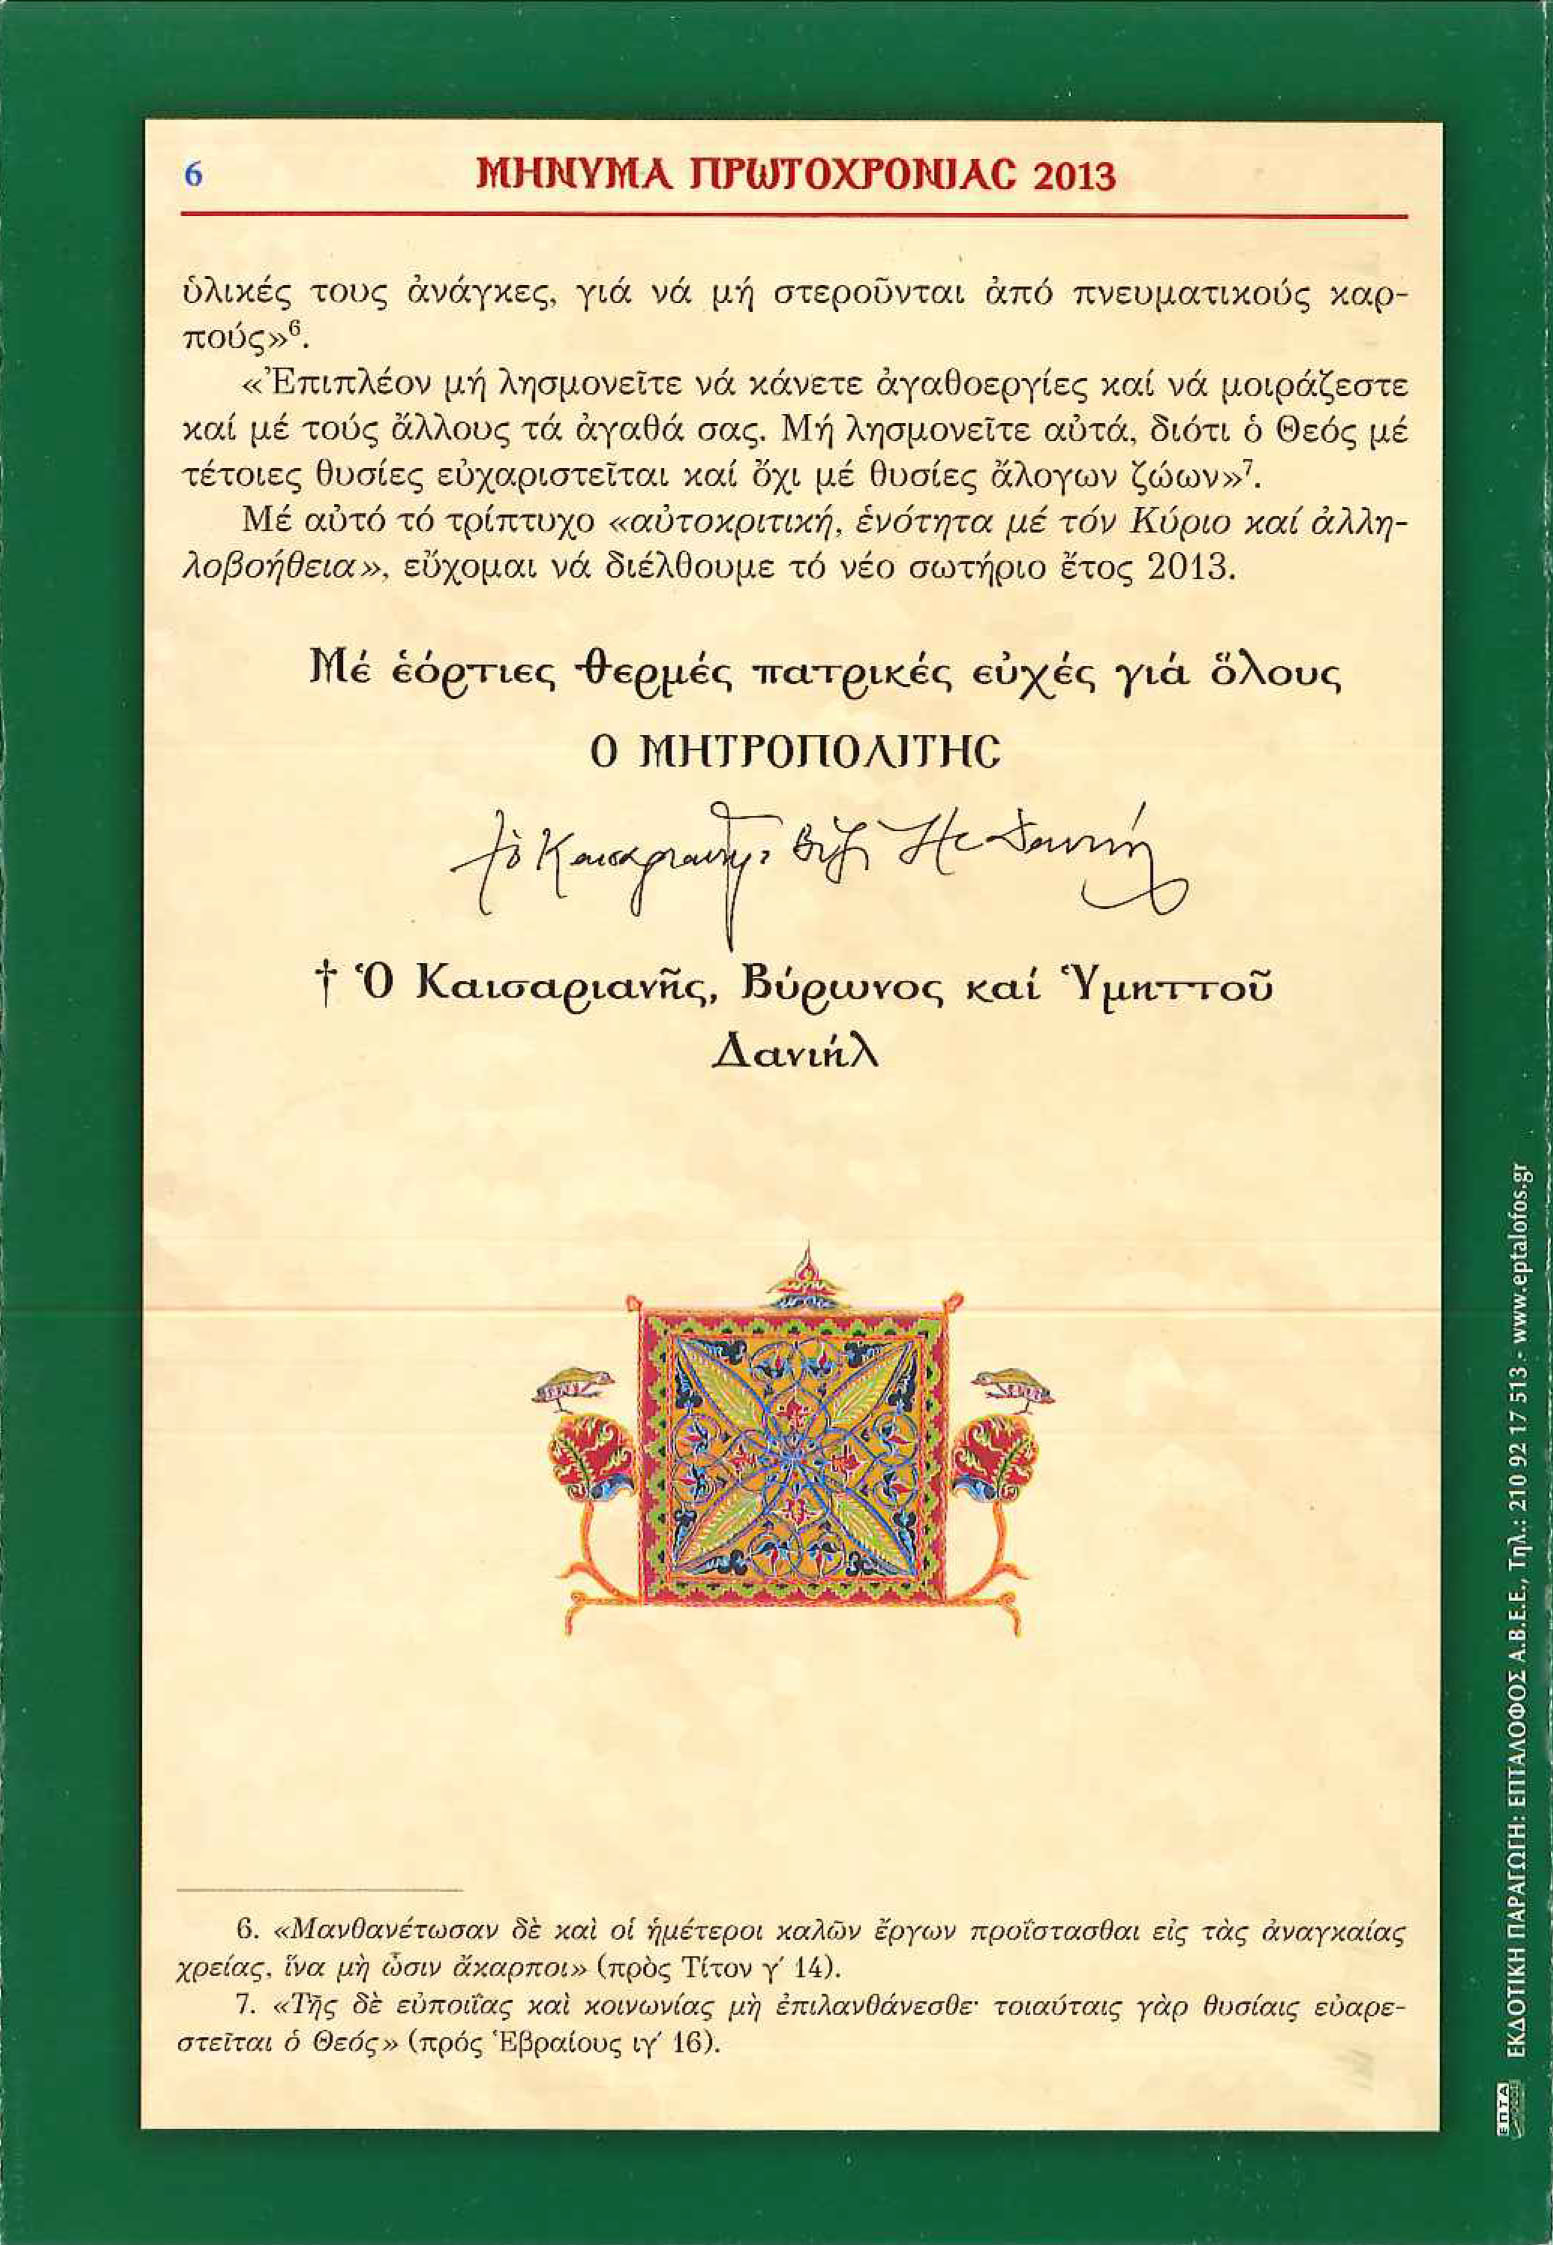 6 ΜΗΝΥΜΑ ΠΡΩΤΟΧΡΟΝΙΑC 2013
ὑλικές τους ἀνάγκες, γιά νά μή στεροῦνται ἀπό πνευματικούς καρ-
πούς»⁶.
«Ἐπιπλέον μή λησμονεῖτε νά κάνετε ἀγαθοεργίες καί νά μοιράζεστε
καί μέ τούς ἄλλους τά ἀγαθά σας. Μή λησμονεῖτε αὐτά, διότι ὁ Θεός μέ
τέτοιες θυσίες εὐχαριστεῖται καί ὄχι μέ θυσίες ἄλογων ζώων»⁷.
Μέ αὐτό τό τρίπτυχο «αὐτοκριτική, ἑνότητα μέ τόν Κύριο καί ἀλλη-
λοβοήθεια», εὔχομαι νά διέλθουμε τό νέο σωτήριο ἔτος 2013.
Μέ ἑόρτιες θερμές πατρικές εὐχές γιά ὅλους
Ο ΜΗΤΡΟΠΟΛΙΤΗC
† ὁ Καισαριανῆς,
† Ὁ Καισαριανῆς, Βύρωνος καί Ὑμηττοῦ
Δανιήλ
6. «Μανθανέτωσαν δὲ καὶ οἱ ἡμέτεροι καλῶν ἔργων προΐστασθαι εἰς τὰς ἀναγκαίας
χρείας, ἵνα μὴ ὦσιν ἄκαρποι» (πρὸς Τίτον γ΄ 14).
7. «Τῆς δὲ εὐποιΐας καὶ κοινωνίας μὴ ἐπιλανθάνεσθε· τοιαύταις γὰρ θυσίαις εὐαρε-
στεῖται ὁ Θεός» (πρός Ἑβραίους ιγ΄ 16).
ΕΠΤΑ
ΕΚΔΟΤΙΚΗ ΠΑΡΑΓΩΓΗ: ΕΠΤΑΛΟΦΟΣ Α.Β.Ε.Ε., Τηλ.: 210 92 17 513 - www.eptalofos.gr